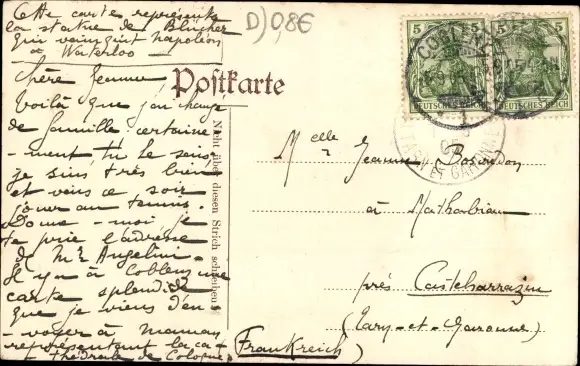 Cette carte représente
la statue de Blücher
qui vainquit napoléon
à Waterloo
D) 0,8€
Chère Jeanne
Postkarte
Voilà que j'ai changé
de famille certaine
-ment tu le sais
je suis très bien
et viens ce soir
jouer au tennis.
Donne-moi je
te prie l'adresse
de Mr Angelini
Il y a à Coblenz une
carte splendide
que je viens d'en-
-voyer à maman
représentant la ca-
thédrale de Cologne.
Nicht über diesen Strich schreiben!
5 5
DEUTSCHES REICH DEUTSCHES REICH
COBLENZ
Melle Jeanne
à Matharbiau
près Castelsarrazin
(Tarn-et-Garonne)
(Frankreich)